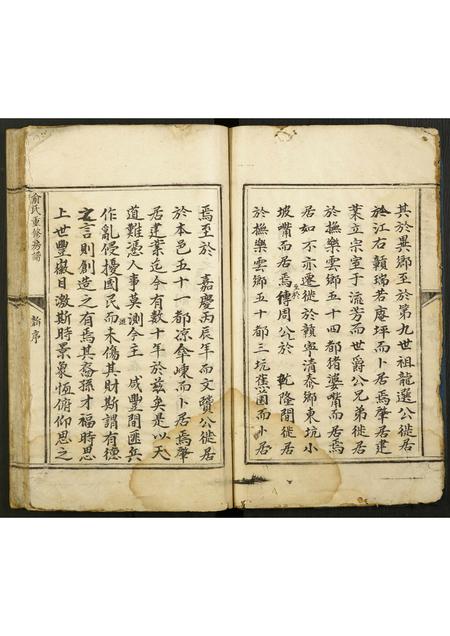 其於異鄉至於第九世祖龍選公徙居
於江右贛瑞若庵坪而卜居焉肇居建
業立宗室于流芳而世爵公兄弟徙居
於撫樂雲鄉五十四都猪婆嘴而居焉
居如不亦遷徙於贛寧清泰鄉東坑小
坡嘴而居焉至於傳周公於 乾隆間徙居
於撫樂雲鄉五十都三坑蕉園而卜居
焉至於 嘉慶丙辰年而文贊公徙居
於本邑五十一都凉傘崠而卜居焉肇
居建業迄今有數十年於兹矣是以天
道難憑人事莫測今主 咸豐間匪兵
作亂侵擾國民而未傷其財斯謂有德
之言則創造之有焉其裔孫才福時思
上世豐徽目激斯時景象恆俯仰思之
俞氏重修族譜
新序